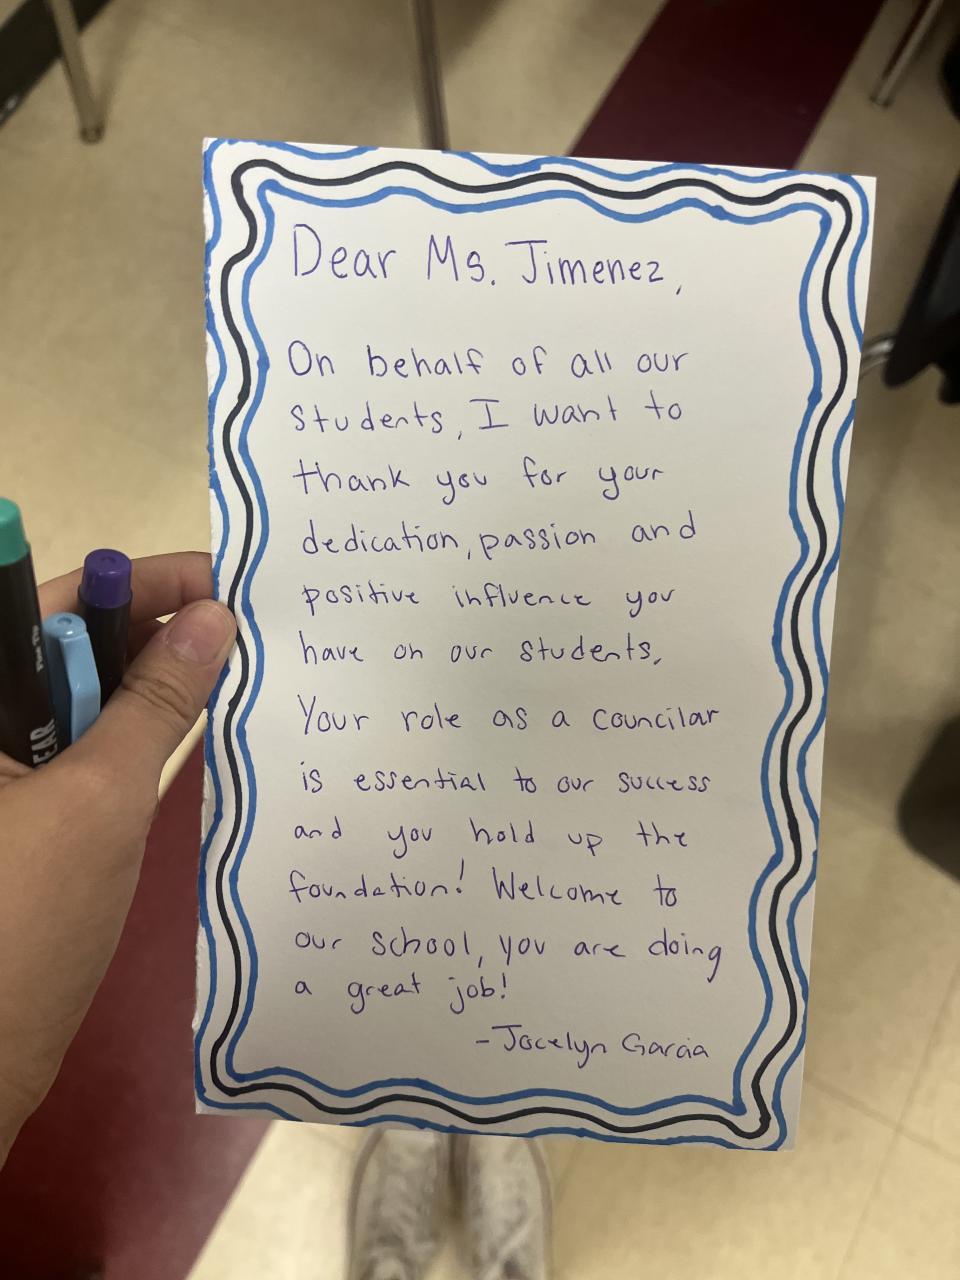 Dear Ms. Jimenez,
On behalf of all our
students, I want to
thank you for your
dedication, passion and
positive influence you
have on our students.
Your role as a councilar
is essential to our success
and you hold up the
foundation! Welcome to
our school, you are doing
a great job!
- Jocelyn Garcia